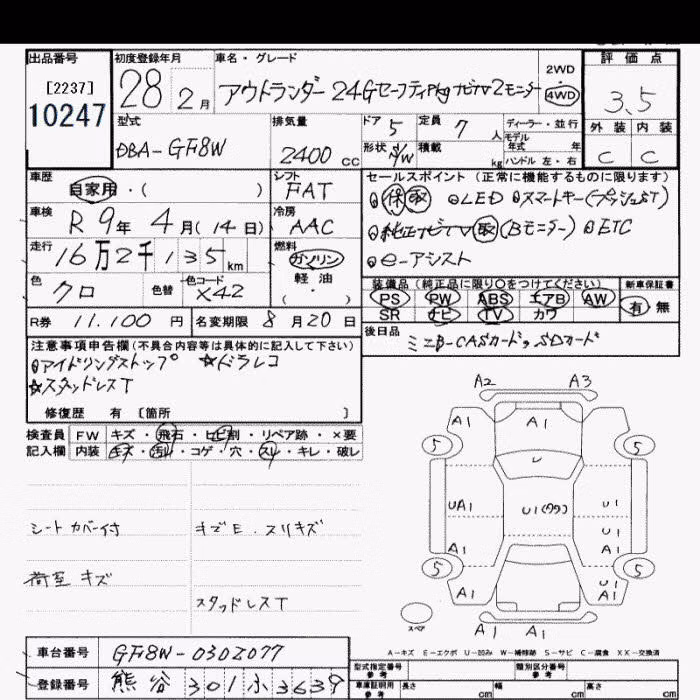 出品番号 初度登録年月 車名・グレード 評価点
[2237]
10247
28年 2月 アウトランダー 24GセーフティPkg ナビTV2モニター 2WD 4WD 3.5
型式 排気量 ドア 5 定員 7人 ディーラー・並行 外装 内装
DBA-GF8W 2400cc 形状 S/W 積載 kg モデル年式 年 ハンドル 左・右 C C
車歴 自家用・( ) シフト FAT セールスポイント (正常に機能するものに限ります)
保取 LED スマートキー(プッシュST)
車検 R 9年 4月(14日) 冷房 AAC
純正ナビTV取(Bモニター) ETC
走行 16万2千135km 燃料 ガソリン 軽油・( )
e-アシスト
色 クロ 色替 色コード X42
装備品 (純正品に限り○をつけてください) 新車保証書
PS PW ABS エアB AW 有 無
SR ナビ TV カワ
R券 11,100円 名変期限 8月20日
後日品 ミニB-CASカード、SDカード
注意事項申告欄(不具合内容等は具体的に記入して下さい)
アイドリングストップ ☆ドラレコ
☆スタッドレスT
修復歴 有 [箇所 ]
検査員 FW キズ・飛石・ヒビ割・リペア跡・×要
記入欄 内装 キズ・汚れ・コゲ・穴・スレ・キレ・破レ
シートカバー付 キズE.スリキズ
荷室キズ
スタッドレスT
A2 A3
A1 A1 A1
5 5
レ
UA1 U1(ワク) U1
U1
A1 A1
5 5
A1 U1
A1
スペア A1 A1
A-キズ E-エクボ U-凹み W-補修跡 S-サビ C-腐食 XX-交換済
車台番号 GF8W-0302077
登録番号 熊谷 301 ふ 3639
型式指定番号 参考 類別区分番号 参考
車庫証明用 参考 長さ cm 幅 cm 高さ cm